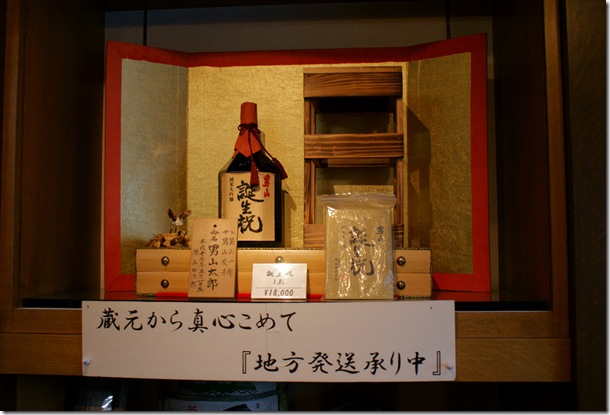 男山
純米大吟醸
誕生祝
命名 男山太郎
誕生祝
1.8L
¥18,000
誕生祝
蔵元から真心こめて
『地方発送承り中』